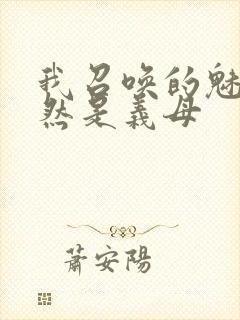 我召唤的魅
然是義母
蕭安陽